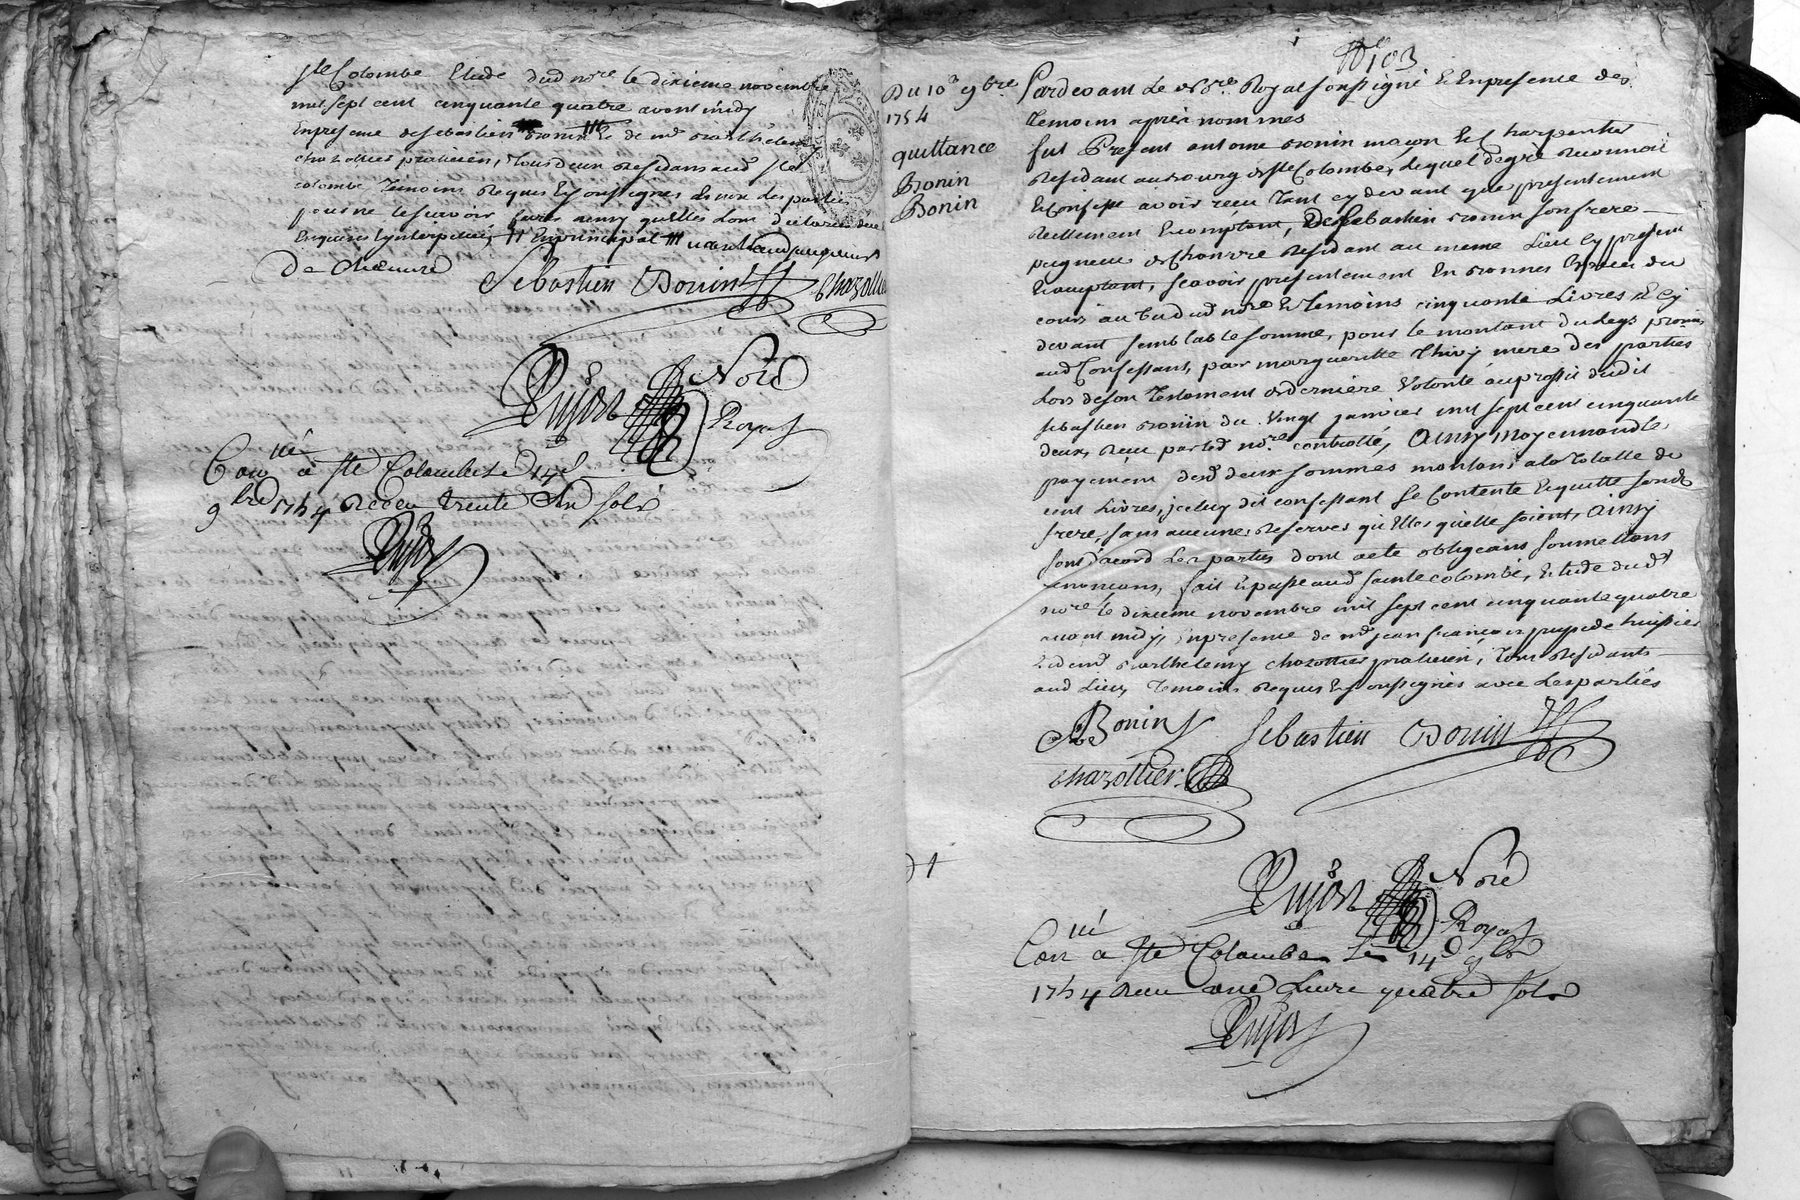 Ste Colombe Etude dud nore le dixieme novembre
mil sept cent cinquante quatre avant midy
En presence de sebastien Bonin et de me Barthelemy
chazottier praticien, tous deux residans aud Ste
colombe temoins requis
pour ne le scavoir faire ainsy quelles ont declaré de ce
Enquis et interpellés, Et En principal
De chanvre
Sebastien Bonin
Chazottier
Pujos Nore
Royal
Conllé a Ste Colombe le 14e
9bre 1754 Receu trente six sols
Pujos
No 103
Du 10e 9bre
1754
quittance
Bonin
Bonin
Pardevant Le nore Royal sousigné Et En presence des
Temoins après nommés
fut Present antoine Bonin maçon Et Charpentier
Residant au bourg de Ste Colombe, lequel de gré Reconnoit
Et Confesse avoir réçu tant cy devant que presentement
Reellement Et comptant, De Sebastien Bonin son frere
peigneur de Chanvre Residant au meme Lieu Cy present
Et acceptant, scavoir presentement En bonnes Especes du
cours au vu dud nore Et temoins cinquante Livres Et Cy
devant semblable somme, pour le montant du Legs
aud Confessant, par marguerite Thivy mere des parties
Lors de son testament de derniere Volonté au proffit dudit
sebastien Bonin du Vingt janvier mil sept cent cinquante
deux, Receu par led nore controllé, Ainsy Moyennand le
payement desd deux sommes montans a la totalle de
cent Livres, jceluy dit confessant Se Contente Et quitte sond
frere, sans aucunes Reserves quelles quelle soient, Ainsy
sont d'acord Les parties dont acte obligeans soumettans
Renoncans, fait Et passé aud sainte colombe, Etude dudt
nore le dixieme novembre mil sept cent cinquante quatre
avant midy, En presence de me jean françois huissier
Et de me barthelemy chazottier praticien, tous Residants
aud Lieu temoins Requis Et sousignés avec Les parties
Bonin
Sebastien Bonin
Chazottier
Pujos Nore
Royal
Conllé a Ste Colombe Le 14e 9bre
1754 Receu une Livre quatre sols
Pujos